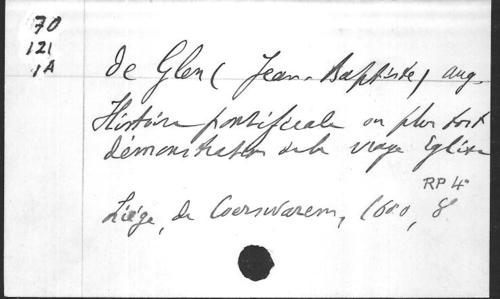 70
121
1A
de Glen (Jean-Baptiste) aug.
Histoire pontificale ou plus tost
démonstration de la vraye Eglise
RP 4°
Liége, de Coerswarem, 1600, 8°